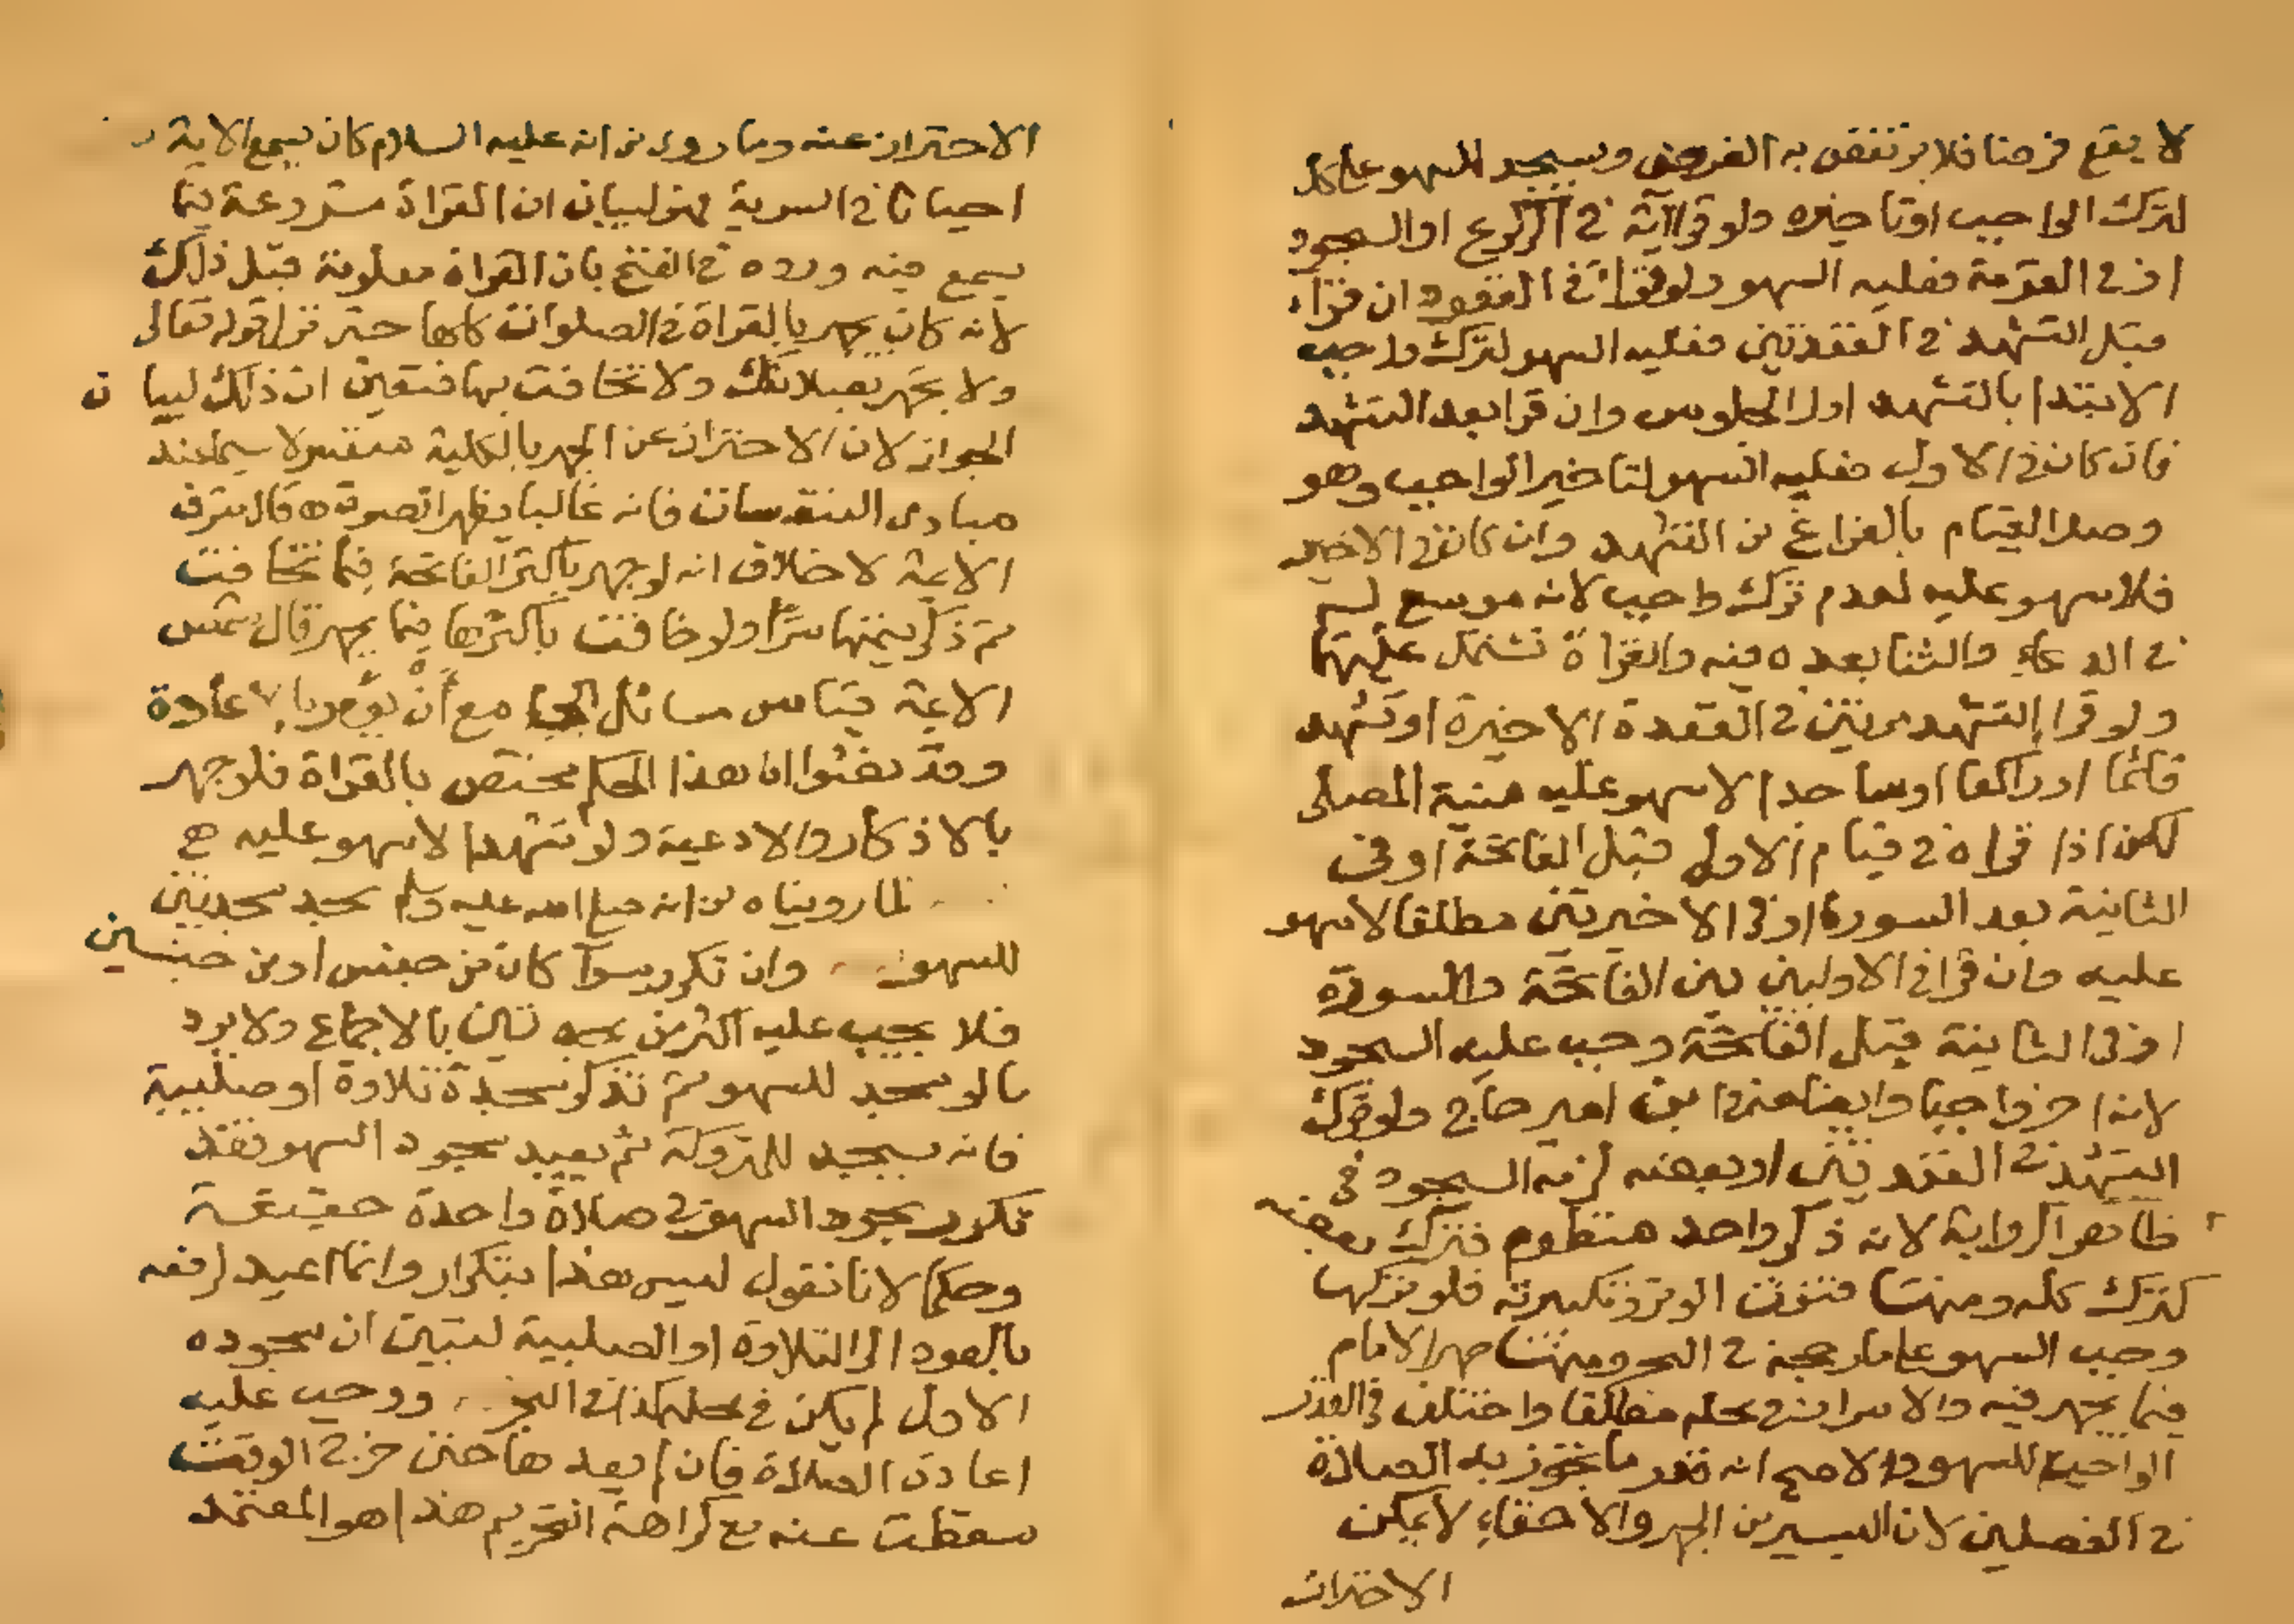 لا يقع فرضا فلا يرتفض به الفرض ويسجد للسهو على كل
لترك الواجب او تاخيره ولو قرا آية في الركوع او السجود
او في القومة فعليه السهو ولو قرا في القعود ان قرا
قبل التشهد في القعدتين فعليه السهو لترك واجب
الابتدا بالتشهد اول الجلوس وان قرا بعد التشهد
فان كان في الاول فعليه السهو لتاخير الواجب وهو
وصل القيام بالفراغ من التشهد وان كان في الاخير
فلا سهو عليه لعدم ترك واجب لانه موسع له
في الدعاء والثنا بعده فيه والقراة تشتمل عليهما
ولو قرا التشهد مرتين في القعدة الاخيرة او تشهد
قائما او راكعا او ساجدا لا سهو عليه منية المصلى
لكن اذا قراه في قيام الاولى قبل الفاتحة او في
الثانية بعد السورة او في الاخيرتين مطلقا لا سهو
عليه وان قرا في الاوليين بين الفاتحة والسورة
او في الثانية قبل الفاتحة وجب عليه السجود
لانه اخر واجبا وايضا هنرا ابن امير حاج ولو ترك
التشهد في القعدتين او بعضه لزمه السجود في
ظاهر الرواية لانه ذكر واحد منظوم فترك بعضه
كترك كله ومنها قنوت الوتر وتكبيرته فلو تركها
وجب السهو على ما رجحه في البحر ومنها جهر الامام
فيما يجهر فيه والاسرار في محله مطلقا واختلف في القدر
الواجب للسهو والاصح انه قدر ما تجوز به الصلاة
في الفصلين لان اليسير من الجهر والاخفاء لا يمكن
الاحتراز
الاحتراز عنه وما روى من انه عليه السلام كان يسمع الاية
احيانا في السرية فهو لبيان ان القراة مشروعة فيما
يسمع فيه ورده في الفتح بان القراة معلومة قبل ذلك
لانه كان يجهر بالقراة في الصلوات كلها حتى نزل قوله تعالى
ولا تجهر بصلاتك ولا تخافت بها فتعين ان ذلك لبيان
الجواز لان الاحتراز عن الجهر بالكلية متعسر لا سيما عند
مبادى التنفسات فانه غالبا يظهر الصوت ه قال شرف
الايمة لا خلاف انه لو جهر باكثر الفاتحة فيما تخافت
ثم ذكر يتمها سرًا ولو خافت باكثرها فيما يجهر قال شمس
الايمة قياس مسائل الجبا مع أنْ يؤمر بالاعادة
وقد بينوا ان هذا الحكم مختص بالقراة فلو جهر
بالاذكار والادعية ولو تشهدا لا سهو عليه ه
لما رويناه من انه صلى الله عليه وسلم سجد سجدتين
للسهو وان تكرر سوآ كان من جنس او من جنسين
فلا يجب عليه اكثر من سجدتين بالاجماع ولا يرد
ما لو سجد للسهو ثم تذكر سجدة تلاوة او صلبية
فانه يسجد للمتروكة ثم يعيد سجود السهو فقد
تكرر سجود السهو في صلاة واحدة حقيقة
وحكما لانا نقول ليس هذا بتكرار وانما اعيد لرفعه
بالعود الى التلاوة او الصلبية لتبين ان سجوده
الاول لم يكن في محله كذا في البحر ووجب عليه
اعادة الصلاة فان لم يعدها حتى خرج الوقت
سقطت عنه مع كراهة التحريم هذا هو المعتمد